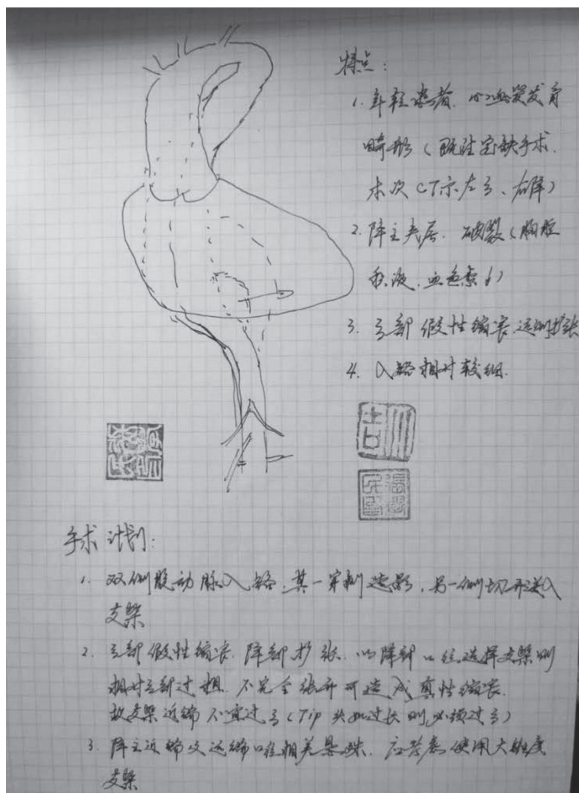 特点：
1. 年轻患者，心血管发育
畸形（既往室缺手术，
本次CT示左弓、右降）
2. 降主夹层、破裂（胸腔
积液、血色素↓）
3. 弓部假性缩窄，远侧扩张
4. 入路相对较细.
手术计划：
1. 双侧股动脉入路，其一穿刺造影，另一侧切开送入
支架
2. 弓部假性缩窄，降部扩张，以降部口径选择支架则
相对弓部过粗，不完全张开可造成真性缩窄.
故支架近端不宜过弓（Tip头如过长则必须过弓）
3. 降主近端及远端口径相差悬殊，应考虑使用大锥度
支架